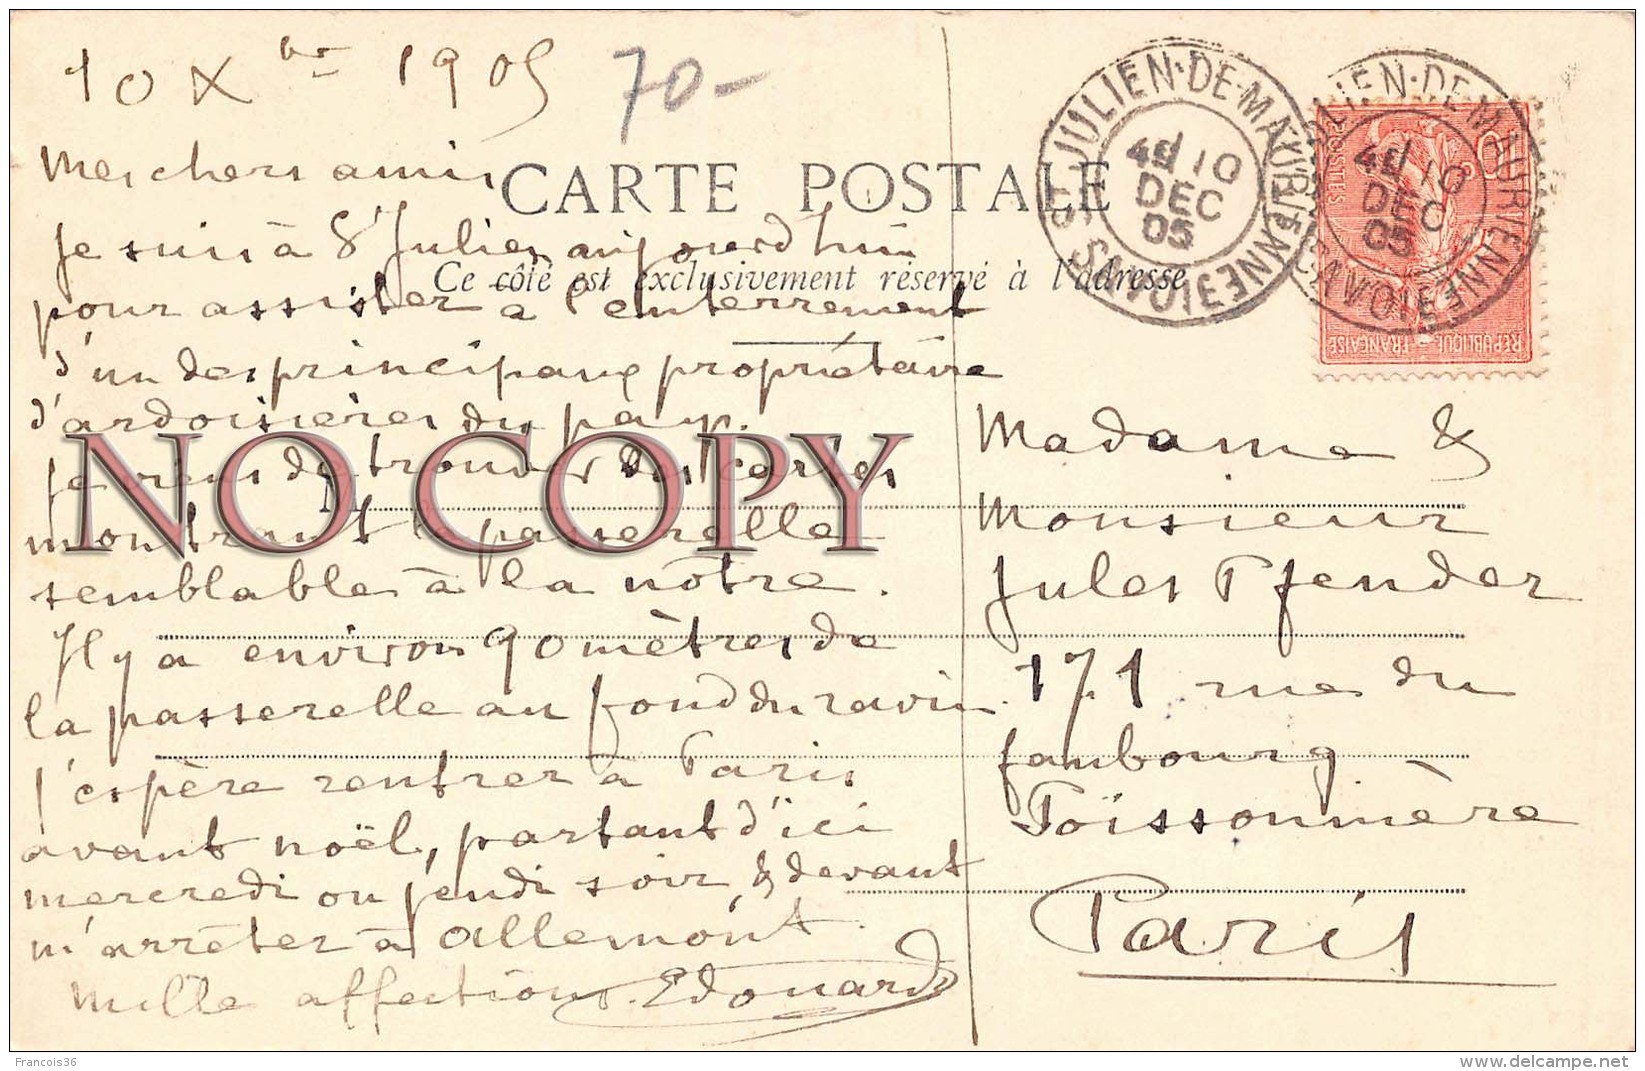 10 Xbr 1905
70-
Mes chers amis
Je suis à St Julien aujourd'hui
pour assister à l'enterrement
d'un des principaux propriétaire
d'ardoisières du pays.
Je viens de trouver des cartes
montrant la passerelle
semblable à la nôtre.
Il y a environ 90 mètres de
la passerelle au fond du ravin.
J'espère rentrer à Paris
avant noël, partant d'ici
mercredi ou jeudi soir & devant
m'arrêter à Allemont.
Mille affections. Edouard
CARTE POSTALE
Ce côté est exclusivement réservé à l'adresse
M
ST JULIEN-DE-MAURIENNE
SAVOIE
4E 10
DEC
05
ST JULIEN-DE-MAURIENNE
SAVOIE
4E 10
DEC
05
10
POSTES
REPUBLIQUE FRANÇAISE
Madame &
Monsieur
Jules Pfender
171 rue du
faubourg
Poïssonnière
Paris
NO COPY
François36
delcampe.net